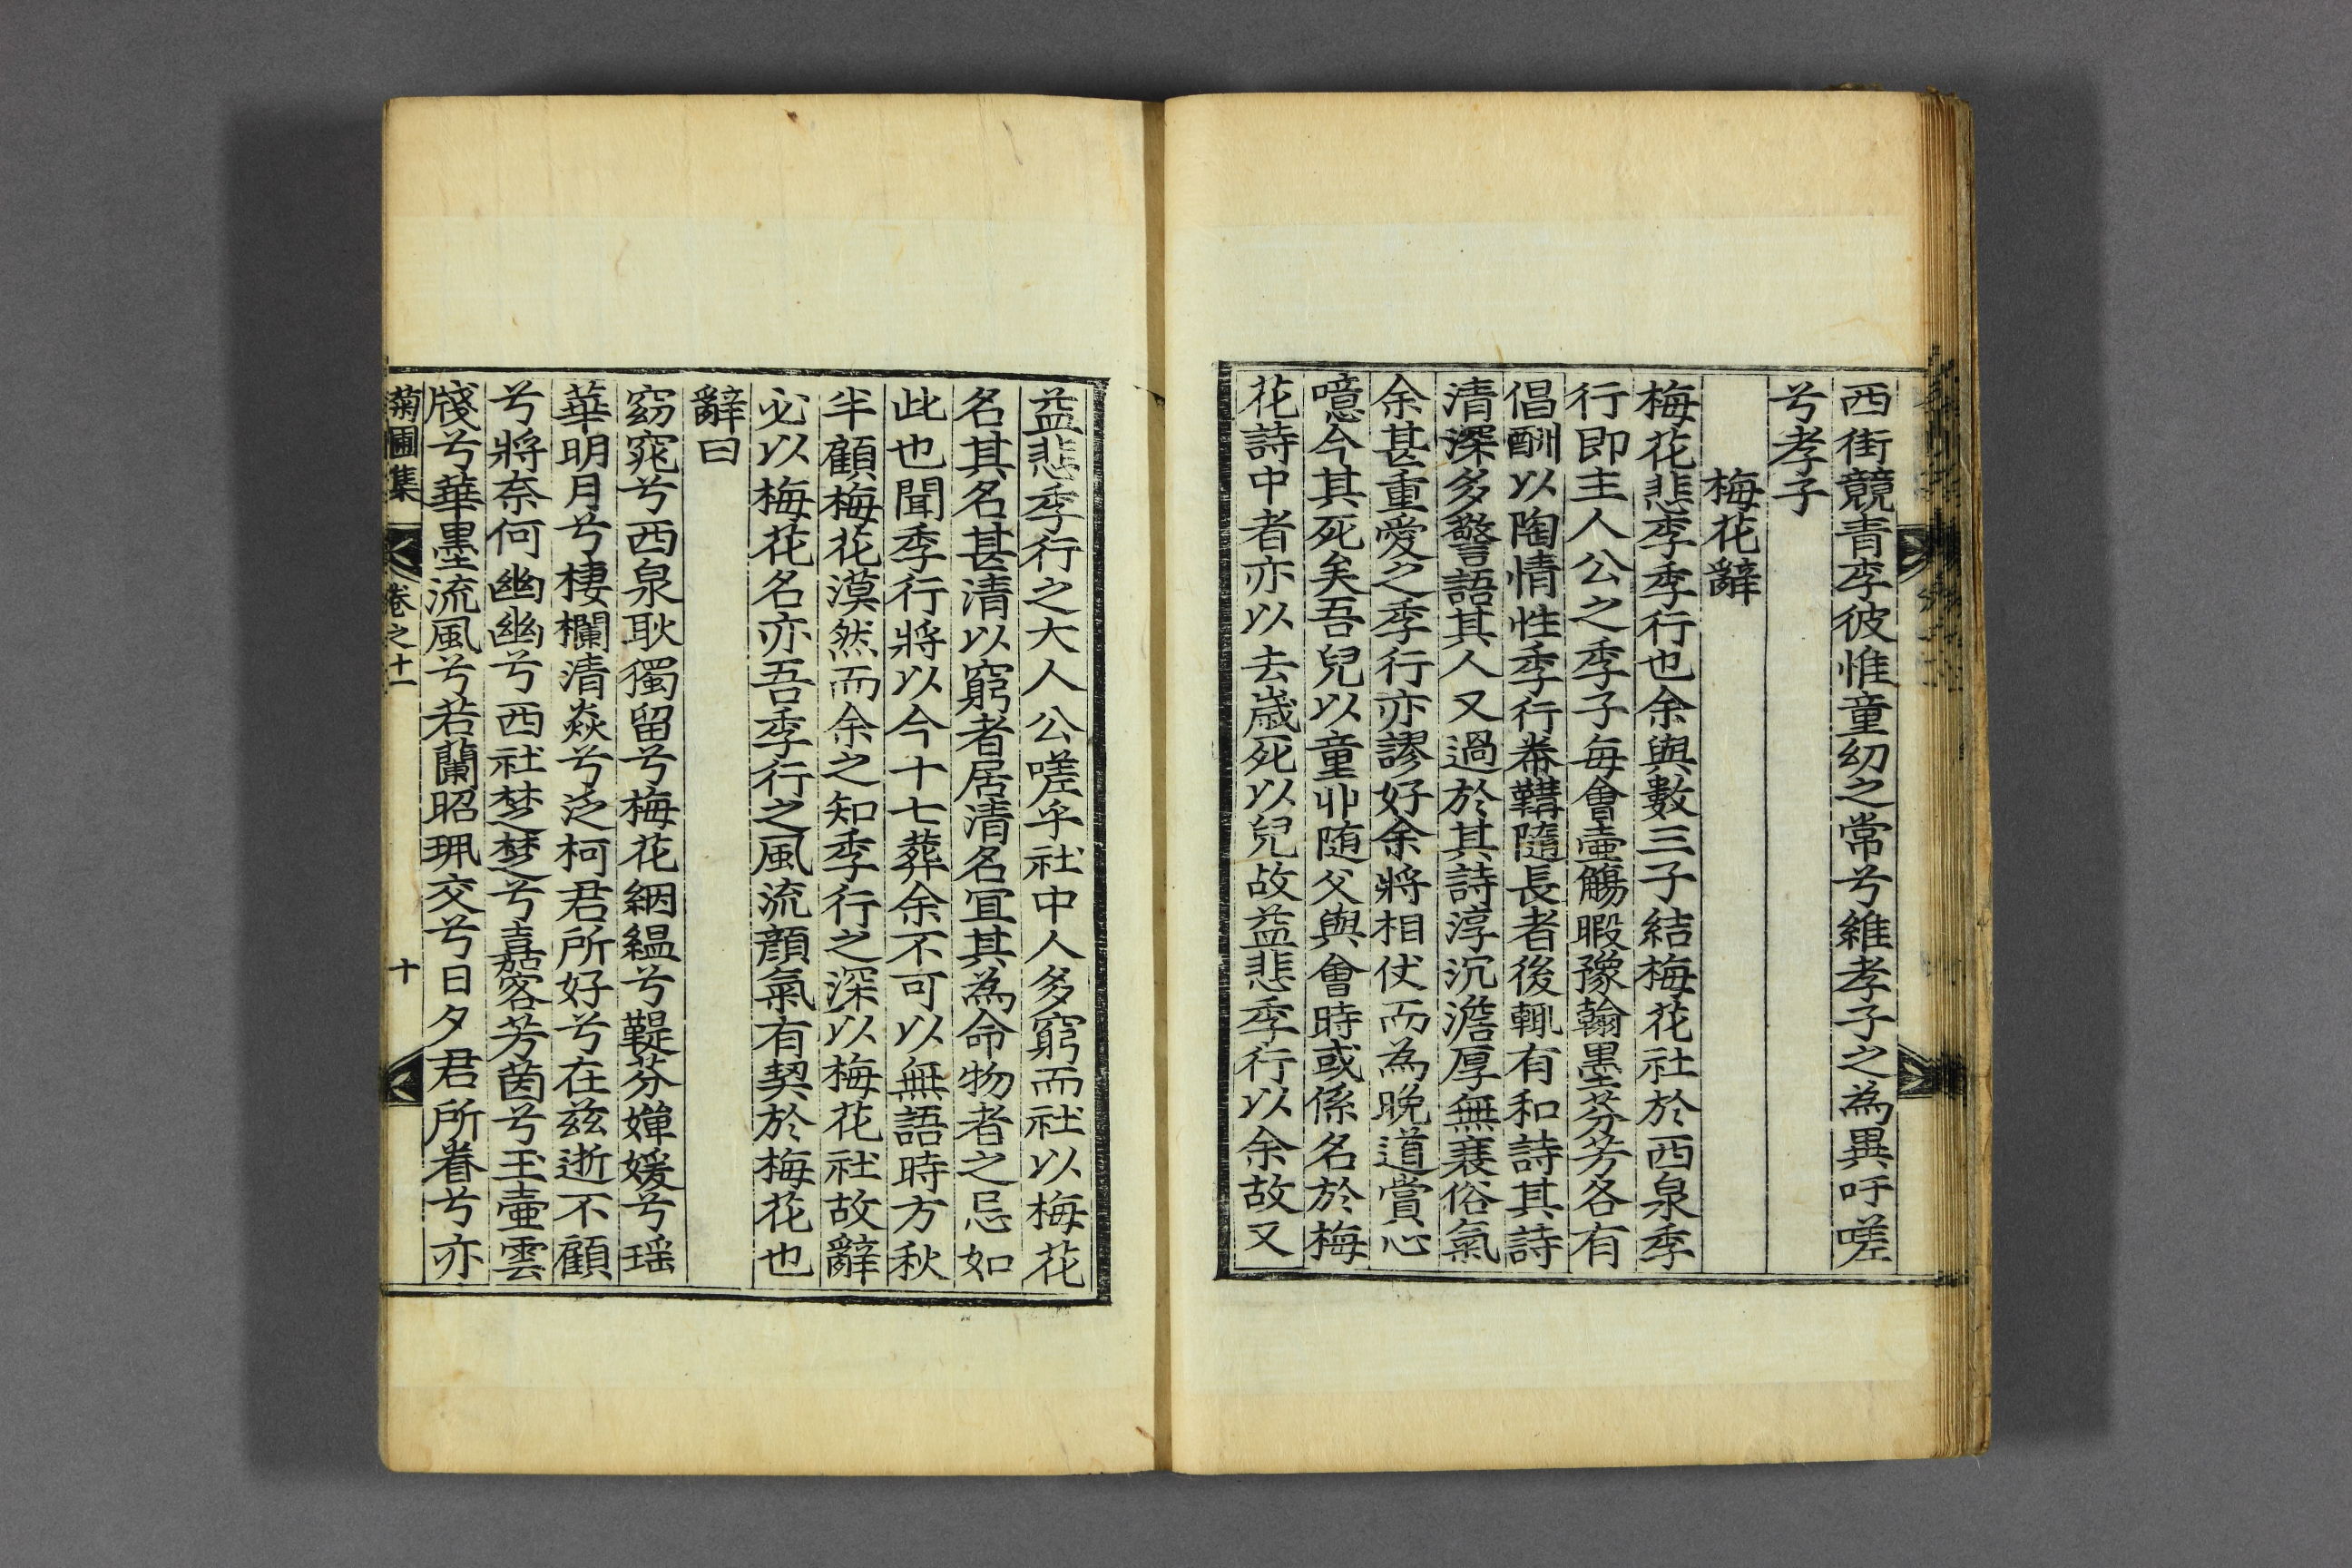 西街競青李彼惟童幼之常兮維孝子之為異吁嗟
兮孝子
梅花辭
梅花悲季季行也余與數三子結梅花社於西泉季
行即主人公之季子每會壷觴暇豫翰墨芬芳各有
倡酬以陶情性季行帣鞲隨長者後輒有和詩其詩
清深多警語其人又過於其詩淳沉澹厚無衰俗氣
余甚重愛之季行亦謬好余將相伏而為晩道賞心
噫今其死矣吾兒以童丱随父與會時或係名於梅
花詩中者亦以去歲死以兒故益悲季行以余故又
益悲季行之大人公嗟乎社中人多窮而社以梅花
名其名甚清以窮者居清名宜其為命物者之忌如
此也聞季行將以今十七葬余不可以無語時方秋
半顧梅花漠然而余之知季行之深以梅花社故辭
必以梅花名亦吾季行之風流顏氣有契於梅花也
辭曰
窈窕兮西泉耿獨留兮梅花絪縕兮鞮芬嬋媛兮瑶
華明月兮棲欄清焱兮泛柯君所好兮在兹逝不顧
兮將奈何幽幽兮西社楚楚兮嘉客芳茵兮玉壷雲
牋兮華墨流風兮若蘭昭珮交兮日夕君所眷兮亦
菊圃集 卷之十一 十